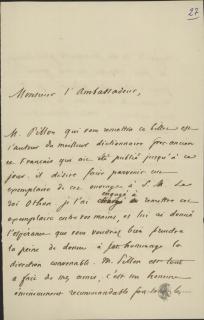 27
Monsieur l'Ambassadeur,
M. Pillon qui vous remettra ce billet est
l'auteur du meilleur dictionnaire grec-ancien
et Français qui ait été publié jusqu'à ce
jour. il désire faire parvenir un
exemplaire de cet ouvrage à S. M. Le
roi Othon je l'ai engagé à remettre cet
exemplaire entre vos mains, et lui ai donné
l'espérance que vous voudrez bien prendre
la peine de donner à son hommage la
direction convenable. M. Pillon est tout
à fait de mes amis, c'est un homme
éminemment recommandable